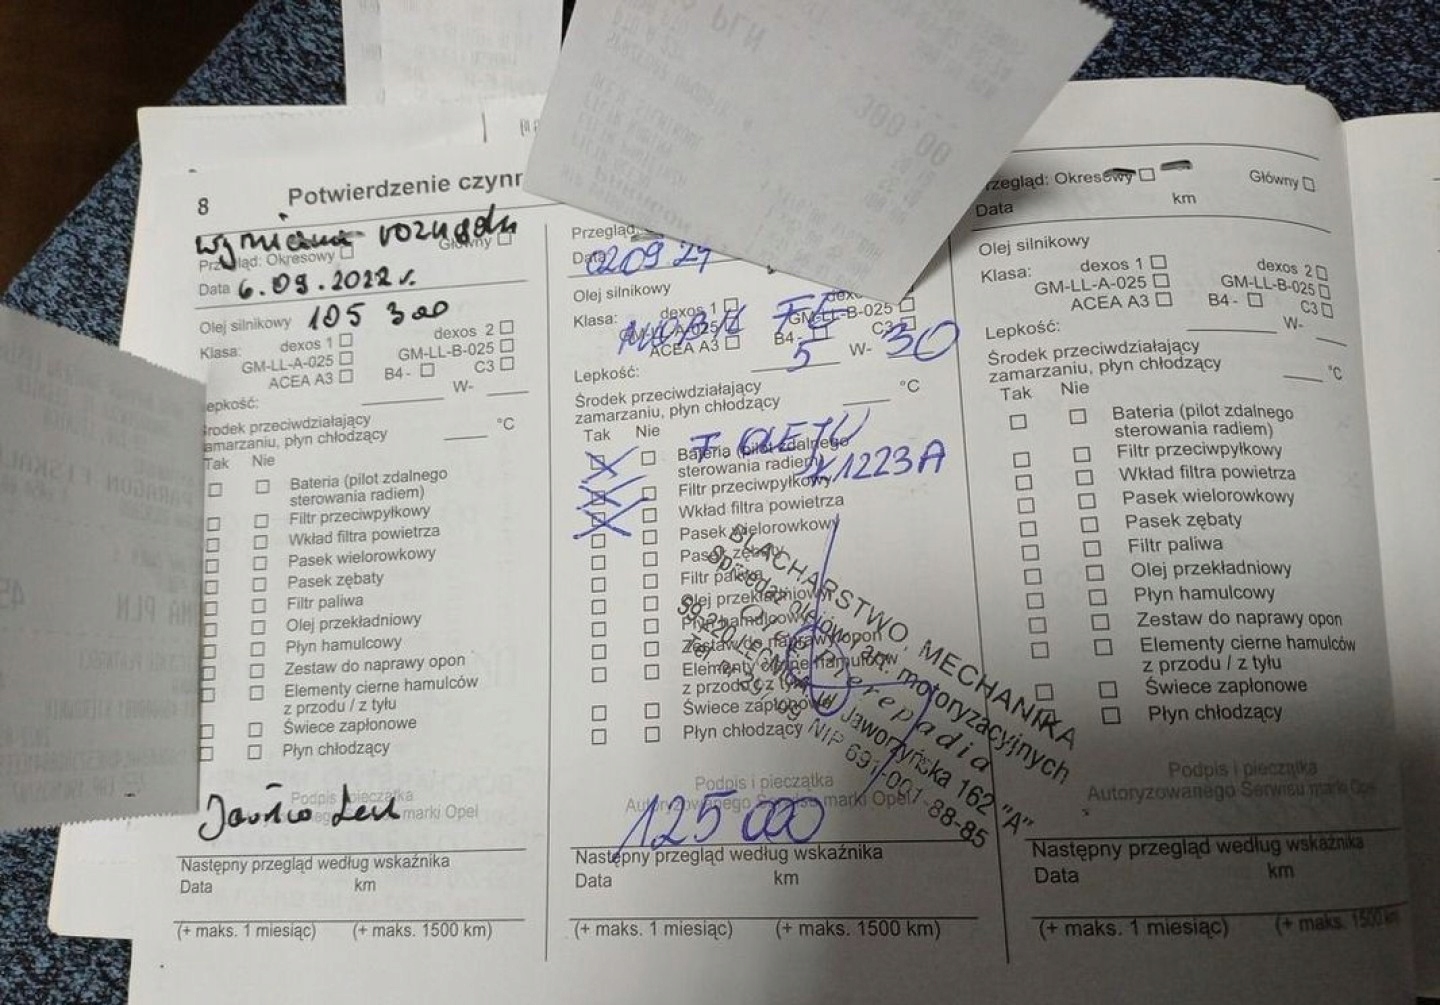 8
Potwierdzenie czynn
Wymiana rozrządu
Przegląd: Okresowy Główny
Data 6.09.2022 r.
Olej silnikowy 105 300
Klasa: dexos 1 dexos 2
GM-LL-A-025 GM-LL-B-025
ACEA A3 B4- C3
epkość: W-
Środek przeciwdziałający
zamarzaniu, płyn chłodzący °C
Tak Nie
Bateria (pilot zdalnego
sterowania radiem)
Filtr przeciwpyłkowy
Wkład filtra powietrza
Pasek wielorowkowy
Pasek zębaty
Filtr paliwa
Olej przekładniowy
Płyn hamulcowy
Zestaw do naprawy opon
Elementy cierne hamulców
z przodu / z tyłu
Świece zapłonowe
Płyn chłodzący
Podpis i pieczątka
marki Opel
Następny przegląd według wskaźnika
Data km
(+ maks. 1 miesiąc) (+ maks. 1500 km)
Przegląd:
Data 02 09 24
Olej silnikowy
Klasa: dexos 1
GM-LL-A-025 GM-LL-B-025
ACEA A3 B4- C3
Lepkość: 5 W- 30
Środek przeciwdziałający
zamarzaniu, płyn chłodzący °C
Tak Nie
F OLEJU
Bateria (pilot zdalnego
sterowania radiem) 1223A
Filtr przeciwpyłkowy
Wkład filtra powietrza
Pasek wielorowkowy
Pasek zębaty
Filtr paliwa
Olej przekładniowy
Płyn hamulcowy
Zestaw do naprawy opon
Elementy cierne hamulców
z przodu / z tyłu
Świece zapłonowe
Płyn chłodzący
BLACHARSTWO, MECHANIKA
motoryzacyjnych
59-220 LEGNICA, ul. Jaworzyńska 162 "A"
NIP 691-001-88-85
Podpis i pieczątka
Autoryzowanego Serwisu marki Opel
125 000
Następny przegląd według wskaźnika
Data km
(+ maks. 1 miesiąc) (+ maks. 1500 km)
rzegląd: Okresowy Główny
Data km
Olej silnikowy
Klasa: dexos 1 dexos 2
GM-LL-A-025 GM-LL-B-025
ACEA A3 B4- C3
Lepkość: W-
Środek przeciwdziałający
zamarzaniu, płyn chłodzący °C
Tak Nie
Bateria (pilot zdalnego
sterowania radiem)
Filtr przeciwpyłkowy
Wkład filtra powietrza
Pasek wielorowkowy
Pasek zębaty
Filtr paliwa
Olej przekładniowy
Płyn hamulcowy
Zestaw do naprawy opon
Elementy cierne hamulców
z przodu / z tyłu
Świece zapłonowe
Płyn chłodzący
Podpis i pieczątka
Autoryzowanego Serwisu marki Opel
Następny przegląd według wskaźnika
Data km
(+ maks. 1 miesiąc) (+ maks. 1500 km)